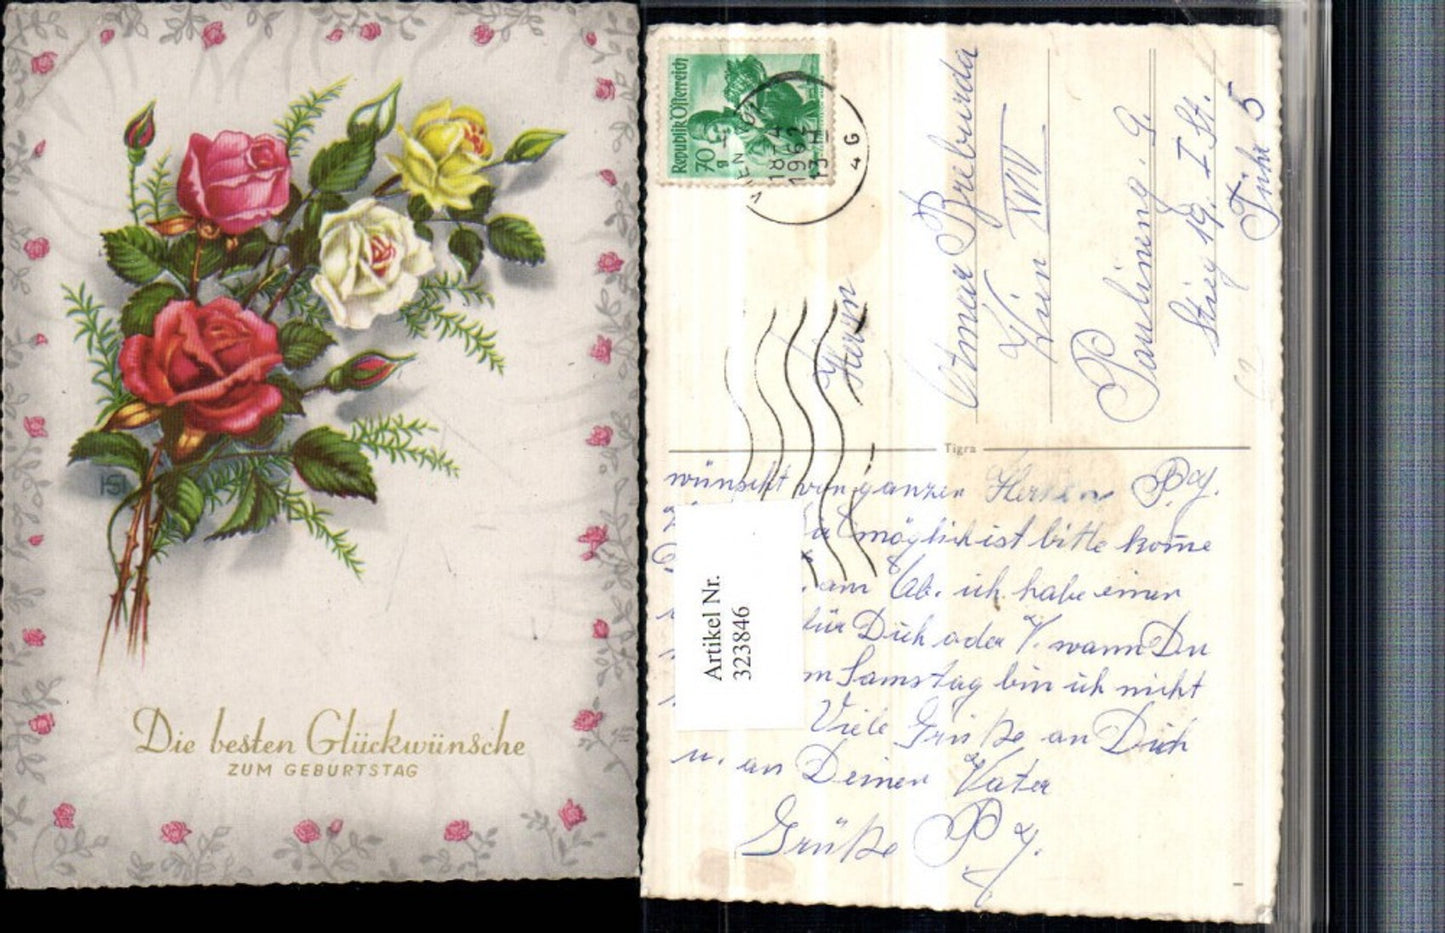 Die besten Glückwünsche
ZUM GEBURTSTAG
HS
Republik Österreich
70
g
WIEN
18.-4
1962
13-H
4 G
Herrn
Otmar Breburda
Wien XVII
Paulineng. 9.
Stieg 19. I St.
Türe 5
Tigra
wünscht von ganzen Herzen
möglich ist bitte kome
am Ab. ich habe einen
für Dich oder V. wann Du
Samstag bin ich nicht
Viele Grüße an Dich
u. an Deinen Vater
Grüße
Artikel Nr.
323846